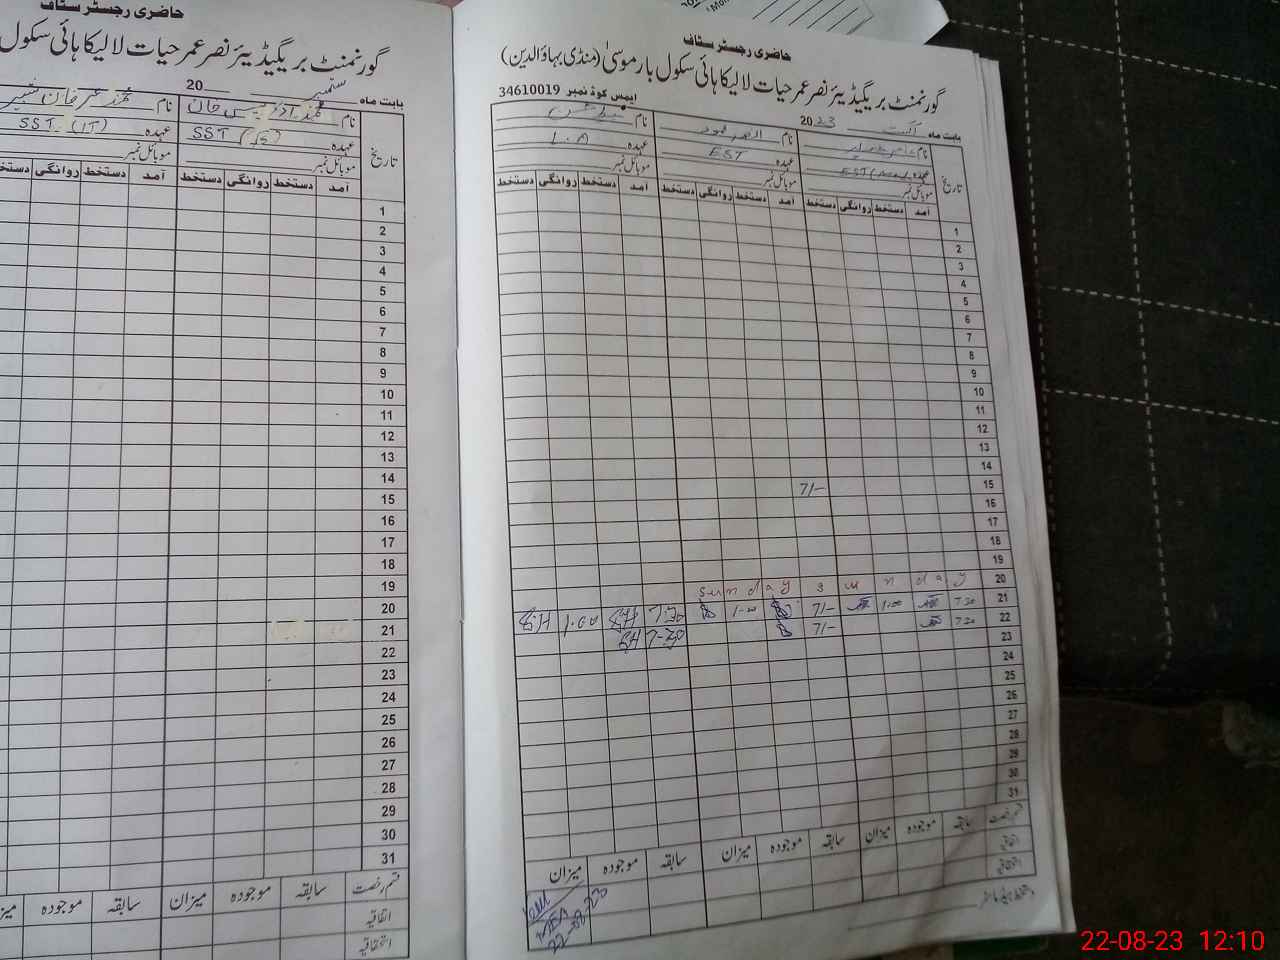 حاضری رجسٹر سٹاف
گورنمنٹ بریگیڈیئر نصر عمر حیات لالیکا ہائی سکول بار موسیٰ (منڈی بہاؤالدین)
ایمس کوڈ نمبر 34610019
بابت ماہ اگست 2023
تاریخ
نام
نام
نام
عہدہ EST
عہدہ EST
عہدہ L.A
موبائل نمبر موبائل نمبر موبائل نمبر
آمد دستخط روانگی دستخط آمد دستخط روانگی دستخط آمد دستخط روانگی دستخط
1
2
3
4
5
6
7
8
9
10
11
12
13
14
15 7/-
16
17
18
19
20 Sunday Sunday
21 7.20 1.00 7/- 1-00 7:20 1.00
22 7.20 7/- 7-20
23
24
25
26
27
28
29
30
31
قسم رخصت سابقہ موجودہ میزان سابقہ موجودہ میزان سابقہ موجودہ میزان
اتفاقیہ
استحقاقیہ
22-08-23
حاضری رجسٹر سٹاف
گورنمنٹ بریگیڈیئر نصر عمر حیات لالیکا ہائی سکول
بابت ماہ ستمبر 20
تاریخ
نام
نام
عہدہ SST
عہدہ SST (IT)
موبائل نمبر موبائل نمبر
آمد دستخط روانگی دستخط آمد دستخط روانگی دستخط
1
2
3
4
5
6
7
8
9
10
11
12
13
14
15
16
17
18
19
20
21
22
23
24
25
26
27
28
29
30
31
قسم رخصت سابقہ موجودہ میزان سابقہ موجودہ میز
اتفاقیہ
استحقاقیہ
22-08-23 12:10